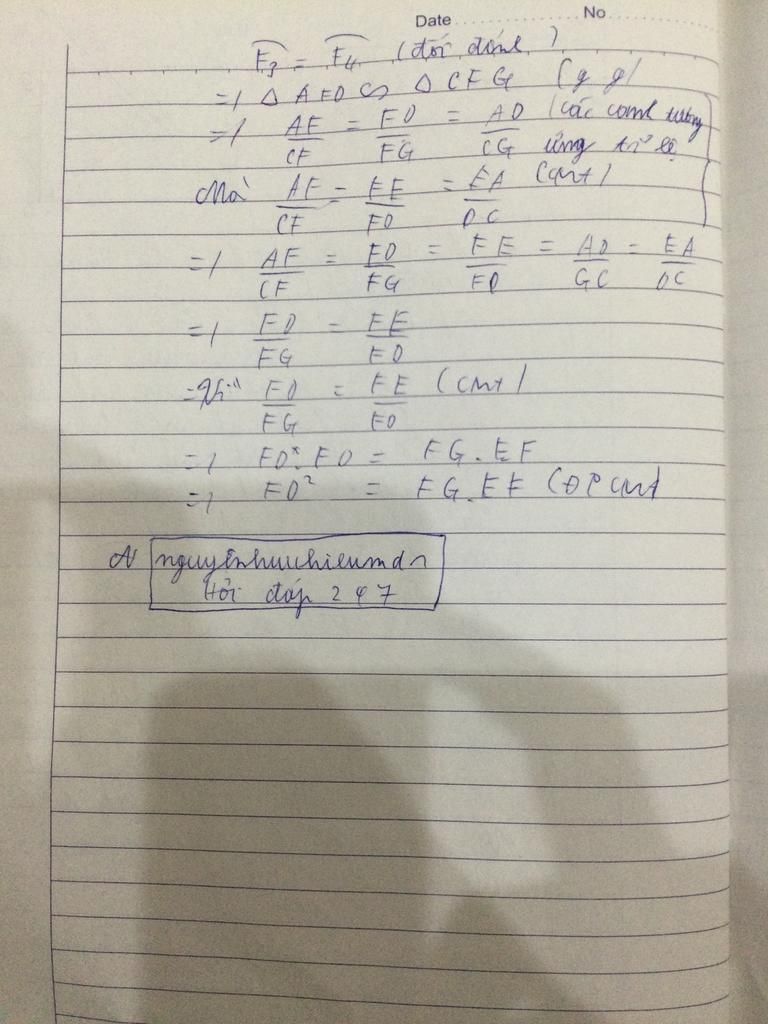 Date No
F₃ = F₄ (đối đỉnh)
=> Δ AFD ∽ Δ CFG (g g)
=> AF/CF = FD/FG = AD/CG (các cạnh tương
ứng tỉ lệ
Mà AF/CF = FE/FD = EA/DC (cmt)
=> AF/CF = FD/FG = FE/FD = AD/GC = EA/DC
=> FD/FG = FE/FD
FD/FG = FE/FD (cmt)
=> FD . FD = FG . EF
=> FD² = FG . EF (ĐPCM)
nguyễnhuuchieumdn
Hỏi đáp 247